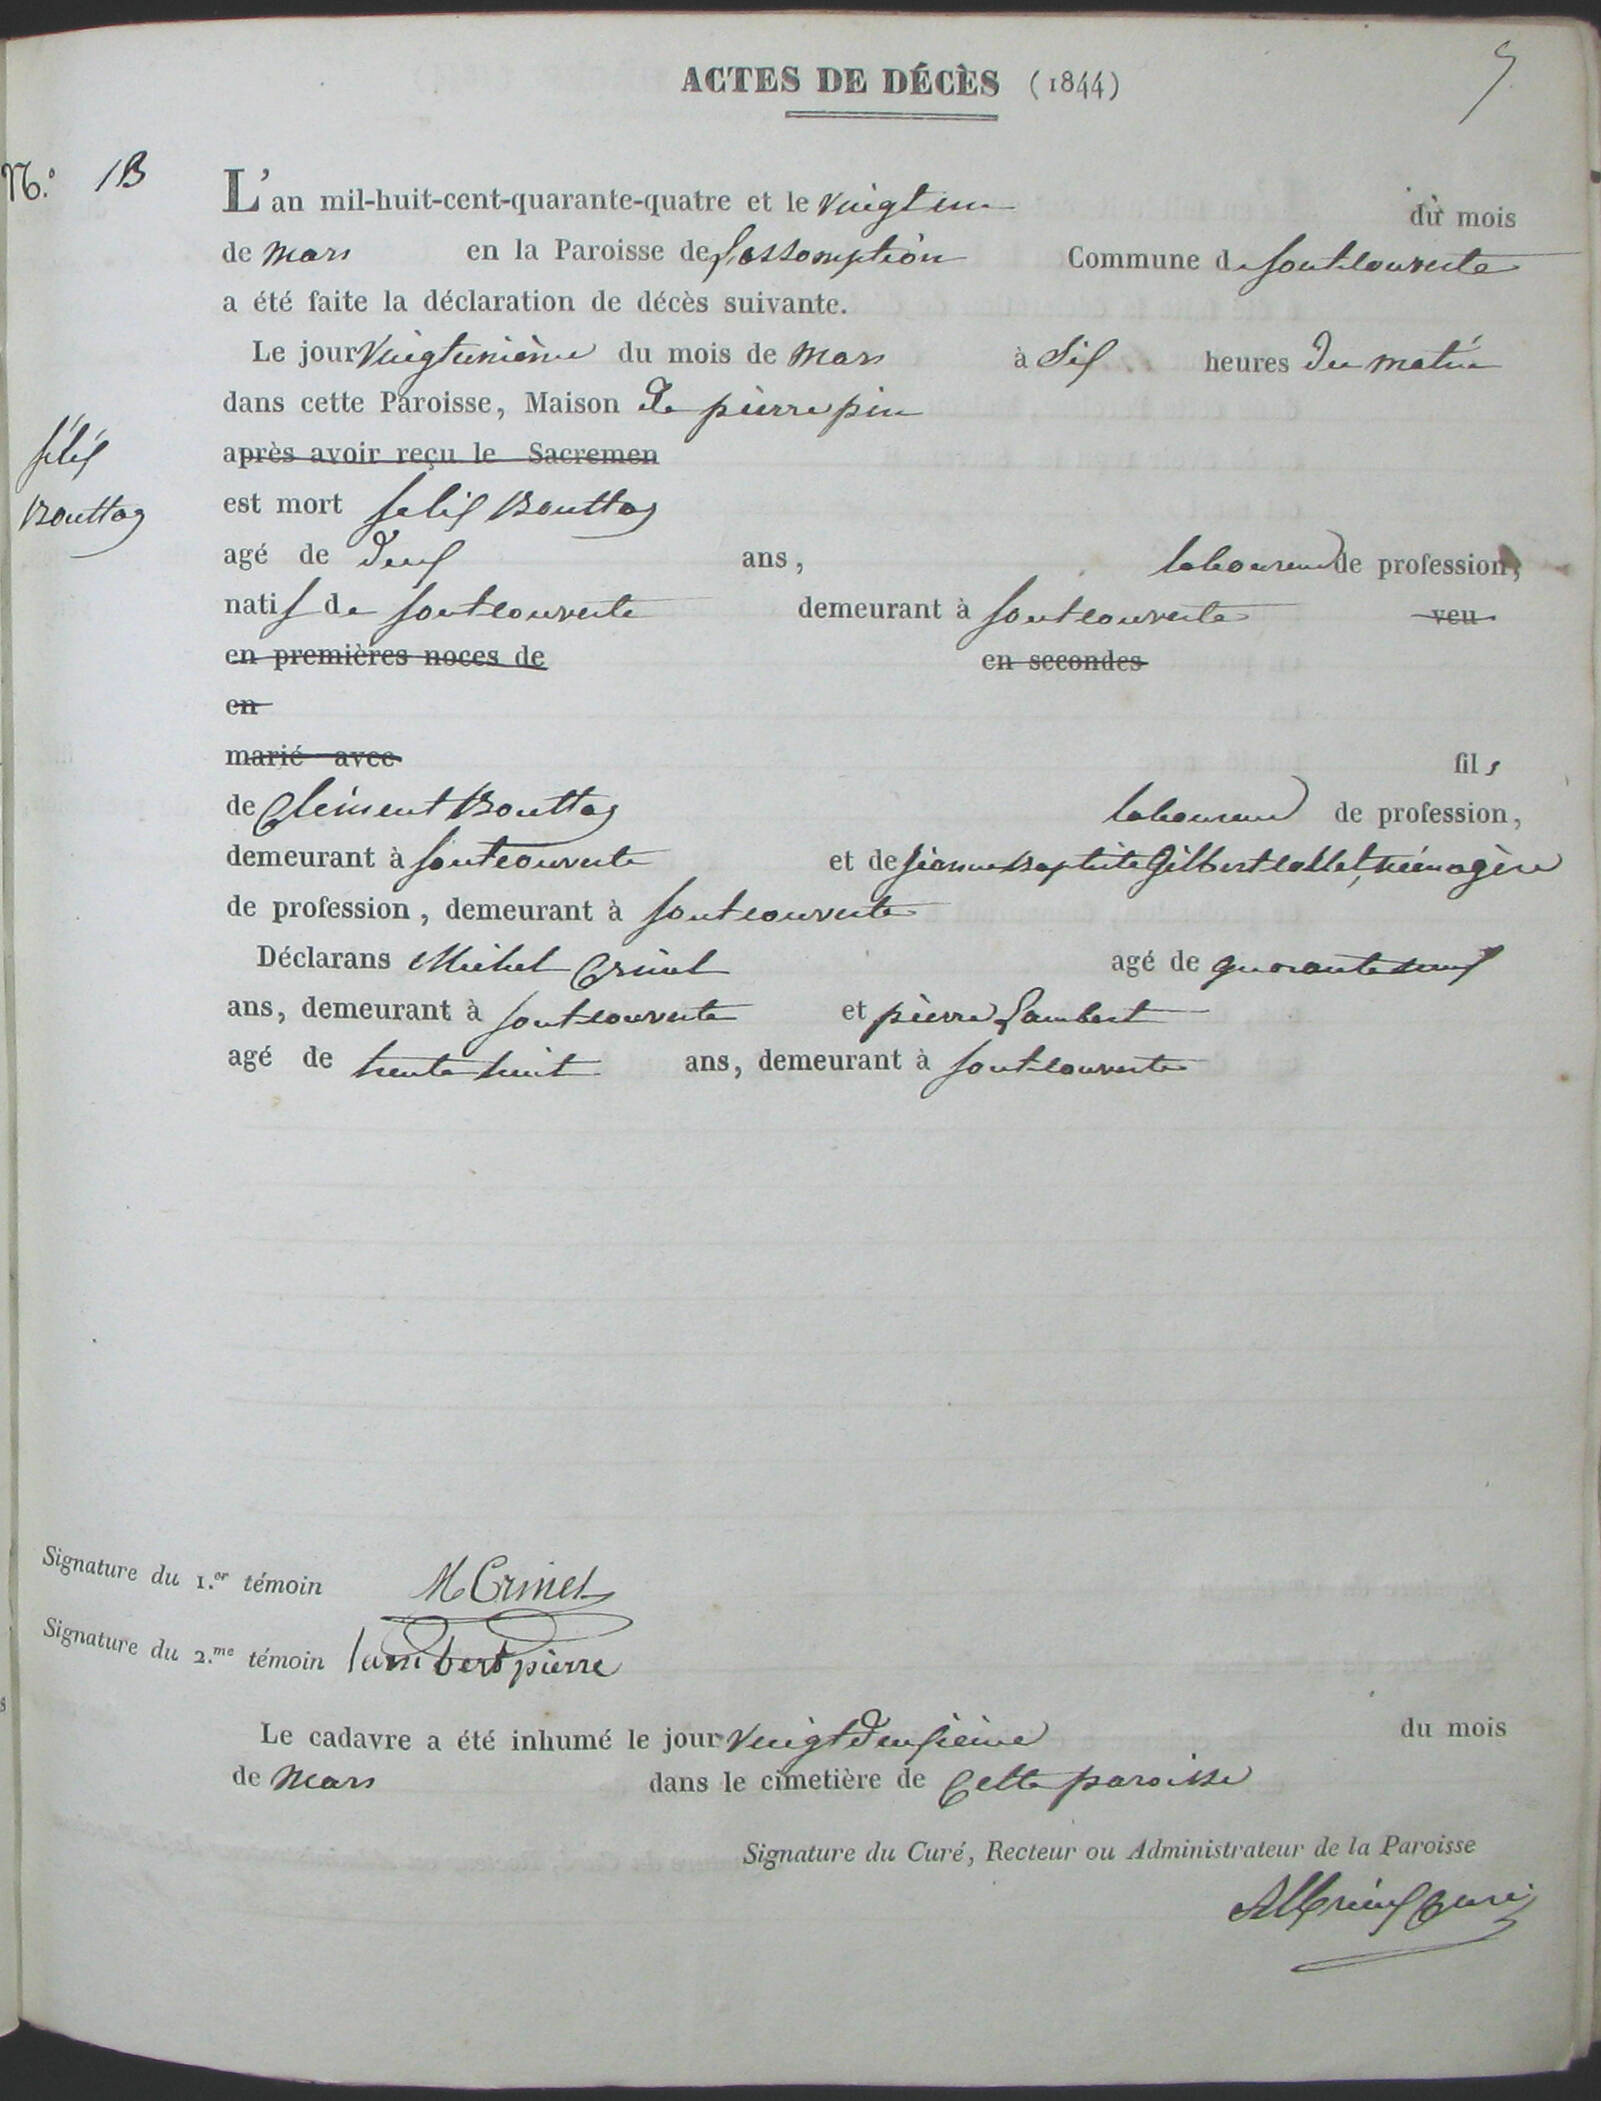 ACTES DE DÉCÈS (1844)
5
N.º 13
L'an mil-huit-cent-quarante-quatre et le vingt un du mois
de mars en la Paroisse de L'assomption Commune de fontcouverte
a été faite la déclaration de décès suivante.
Le jour vingtunième du mois de mars à Six heures du matin
dans cette Paroisse, Maison de pierre pin
après avoir reçu le Sacremen
félix
Bouttaz
est mort felix Bouttaz
agé de deux ans, laboureur de profession,
natif de fontcouverte demeurant à fontcouverte veu
en premières noces de en secondes
en
marié avec fils
de Clément Bouttaz laboureur de profession,
demeurant à fontcouverte et de jéanne baptiste Gilbert collet, ménagère
de profession, demeurant à fontcouverte
Déclarans Michel Crinel agé de quarante neuf
ans, demeurant à fontcouverte et pierre Lambert
agé de trente huit ans, demeurant à fontcouverte
Signature du 1.er témoin M Crinel
Signature du 2.me témoin lambert pierre
Le cadavre a été inhumé le jour vingt deuxième du mois
de mars dans le cimetière de Cette paroisse
Signature du Curé, Recteur ou Administrateur de la Paroisse
curé